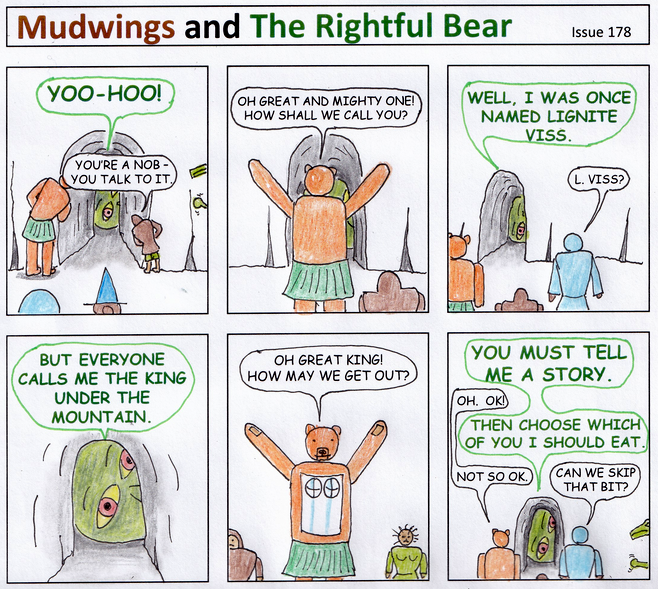 Mudwings and The Rightful Bear
Issue 178
YOO-HOO!
YOU'RE A NOB -
YOU TALK TO IT.
OH GREAT AND MIGHTY ONE!
HOW SHALL WE CALL YOU?
WELL, I WAS ONCE
NAMED LIGNITE
VISS.
L. VISS?
BUT EVERYONE
CALLS ME THE KING
UNDER THE
MOUNTAIN.
OH GREAT KING!
HOW MAY WE GET OUT?
YOU MUST TELL
ME A STORY.
OH. OK!
THEN CHOOSE WHICH
OF YOU I SHOULD EAT.
NOT SO OK.
CAN WE SKIP
THAT BIT?